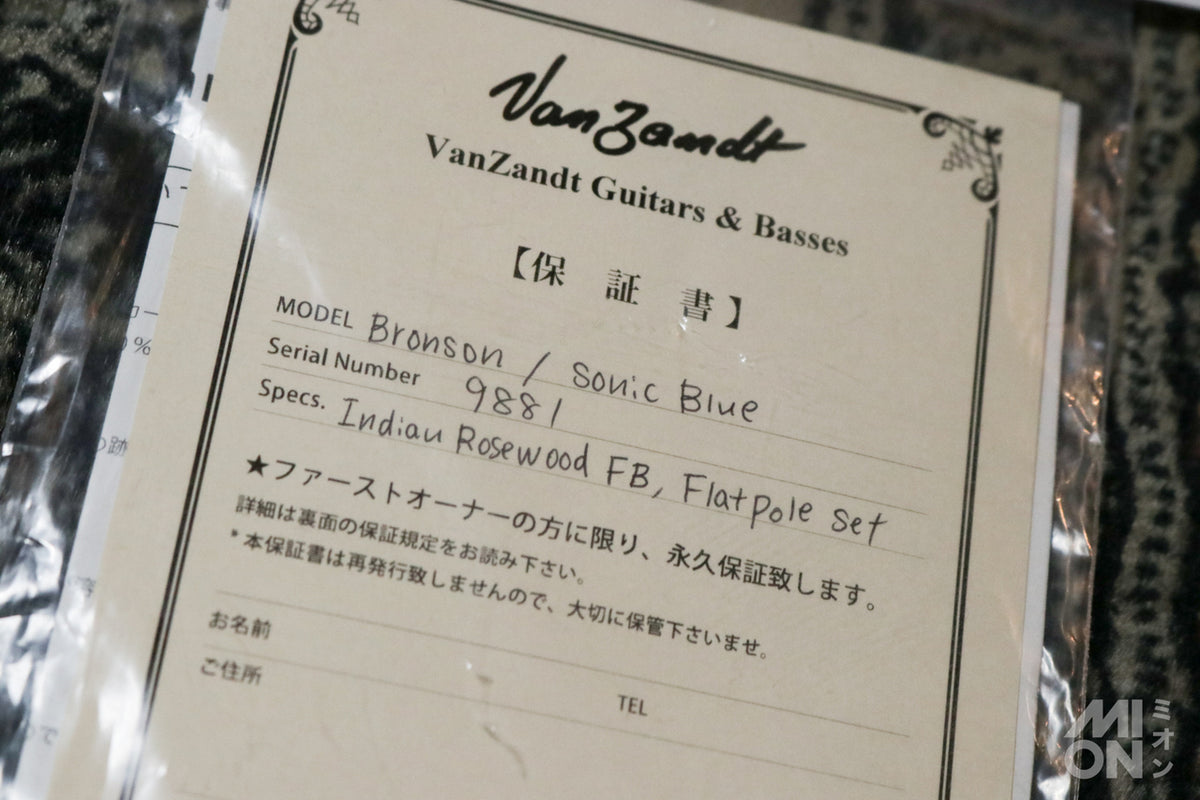 VanZandt
VanZandt Guitars & Basses
【保 証 書】
MODEL Bronson / Sonic Blue
Serial Number 9881
Specs. Indian Rosewood FB, Flatpole Set
★ファーストオーナーの方に限り、永久保証致します。
詳細は裏面の保証規定をお読み下さい。
*本保証書は再発行致しませんので、大切に保管下さいませ。
お名前
ご住所 TEL
MION
ミオン